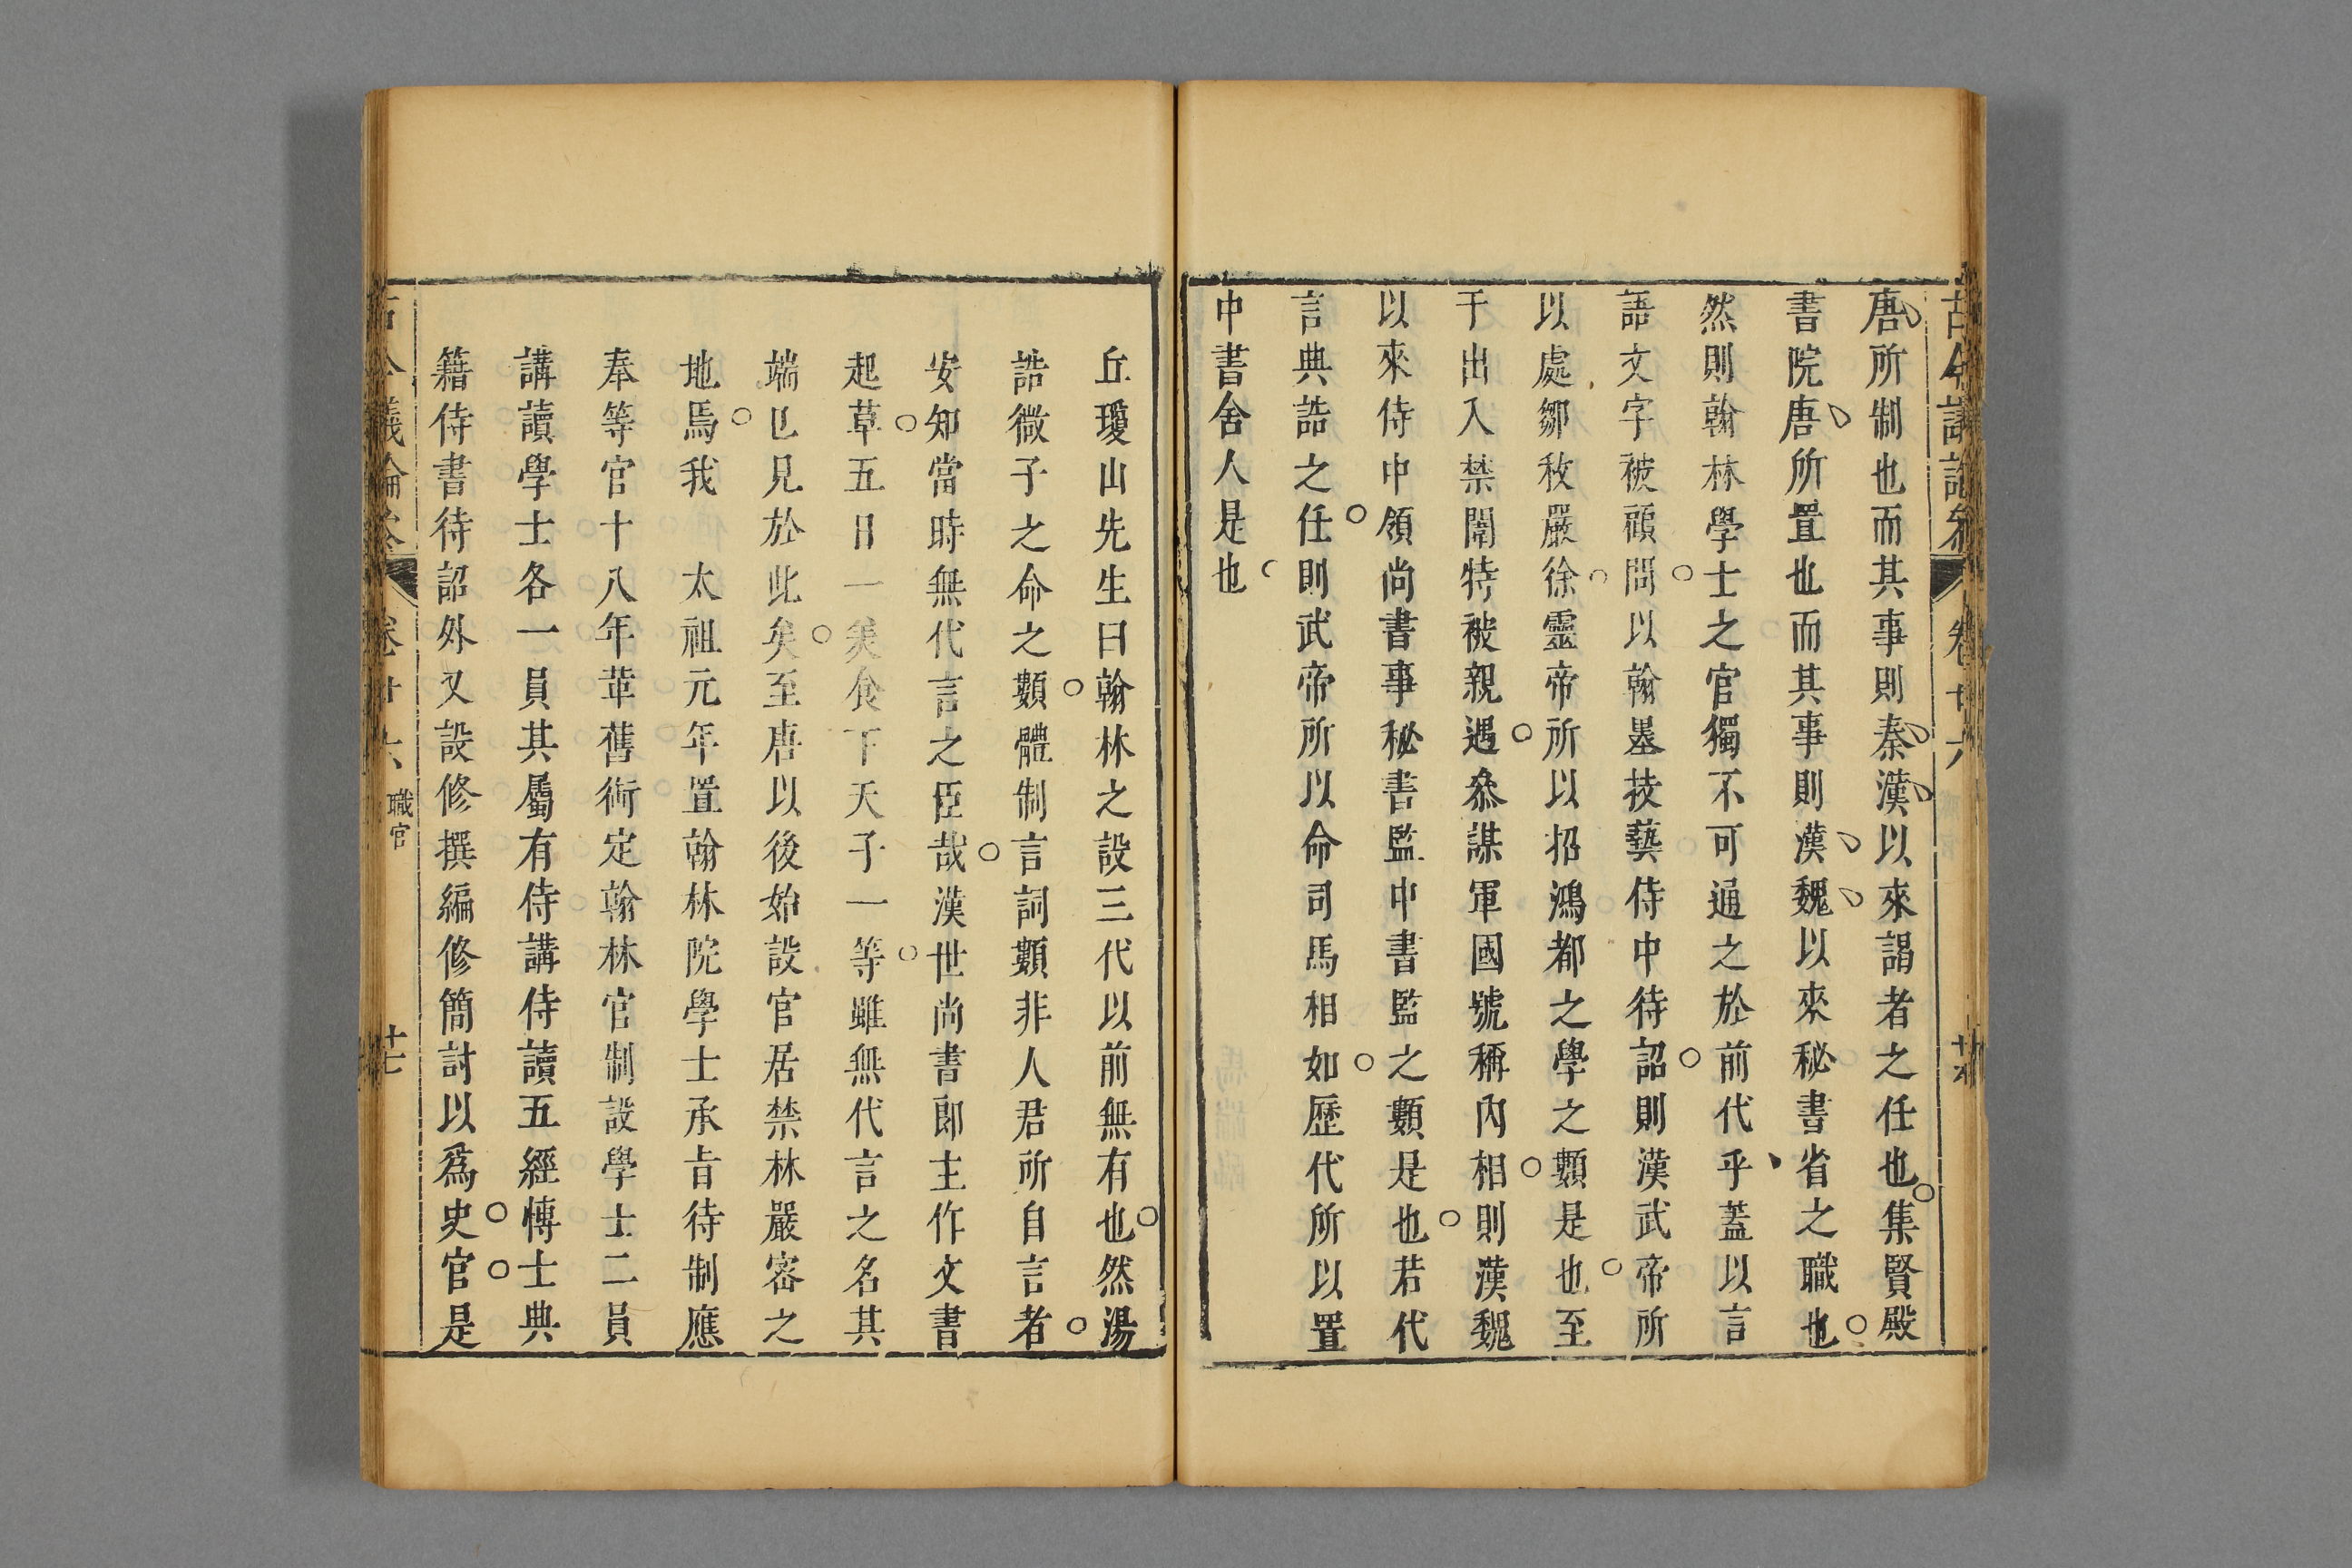 古今議論參 卷廿六
唐所制也而其事則秦漢以來謁者之任也集賢殿
書院唐所置也而其事則漢魏以來秘書省之職也
然則翰林學士之官獨不可通之於前代乎蓋以言
語文字被顧問以翰墨技藝侍中待詔則漢武帝所
以處鄒枚嚴徐靈帝所以招鴻都之學之類是也至
于出入禁闥特被親遇叅謀軍國號稱內相則漢魏
以來侍中領尚書事秘書監中書監之類是也若代
言典誥之任則武帝所以命司馬相如歷代所以置
中書舍人是也
丘瓊山先生曰翰林之設三代以前無有也然湯
誥微子之命之類體制言詞類非人君所自言者
安知當時無代言之臣哉漢世尚書郎主作文書
起草五日一美食下天子一等雖無代言之名其
端已見於此矣至唐以後始設官居禁林嚴密之
地焉我 太祖元年置翰林院學士承旨待制應
奉等官十八年革舊衘定翰林官制設學士二員
講讀學士各一員其屬有侍講侍讀五經博士典
籍侍書待詔外又設修撰編修簡討以爲史官是
古今議論參 卷廿六 職官 十七